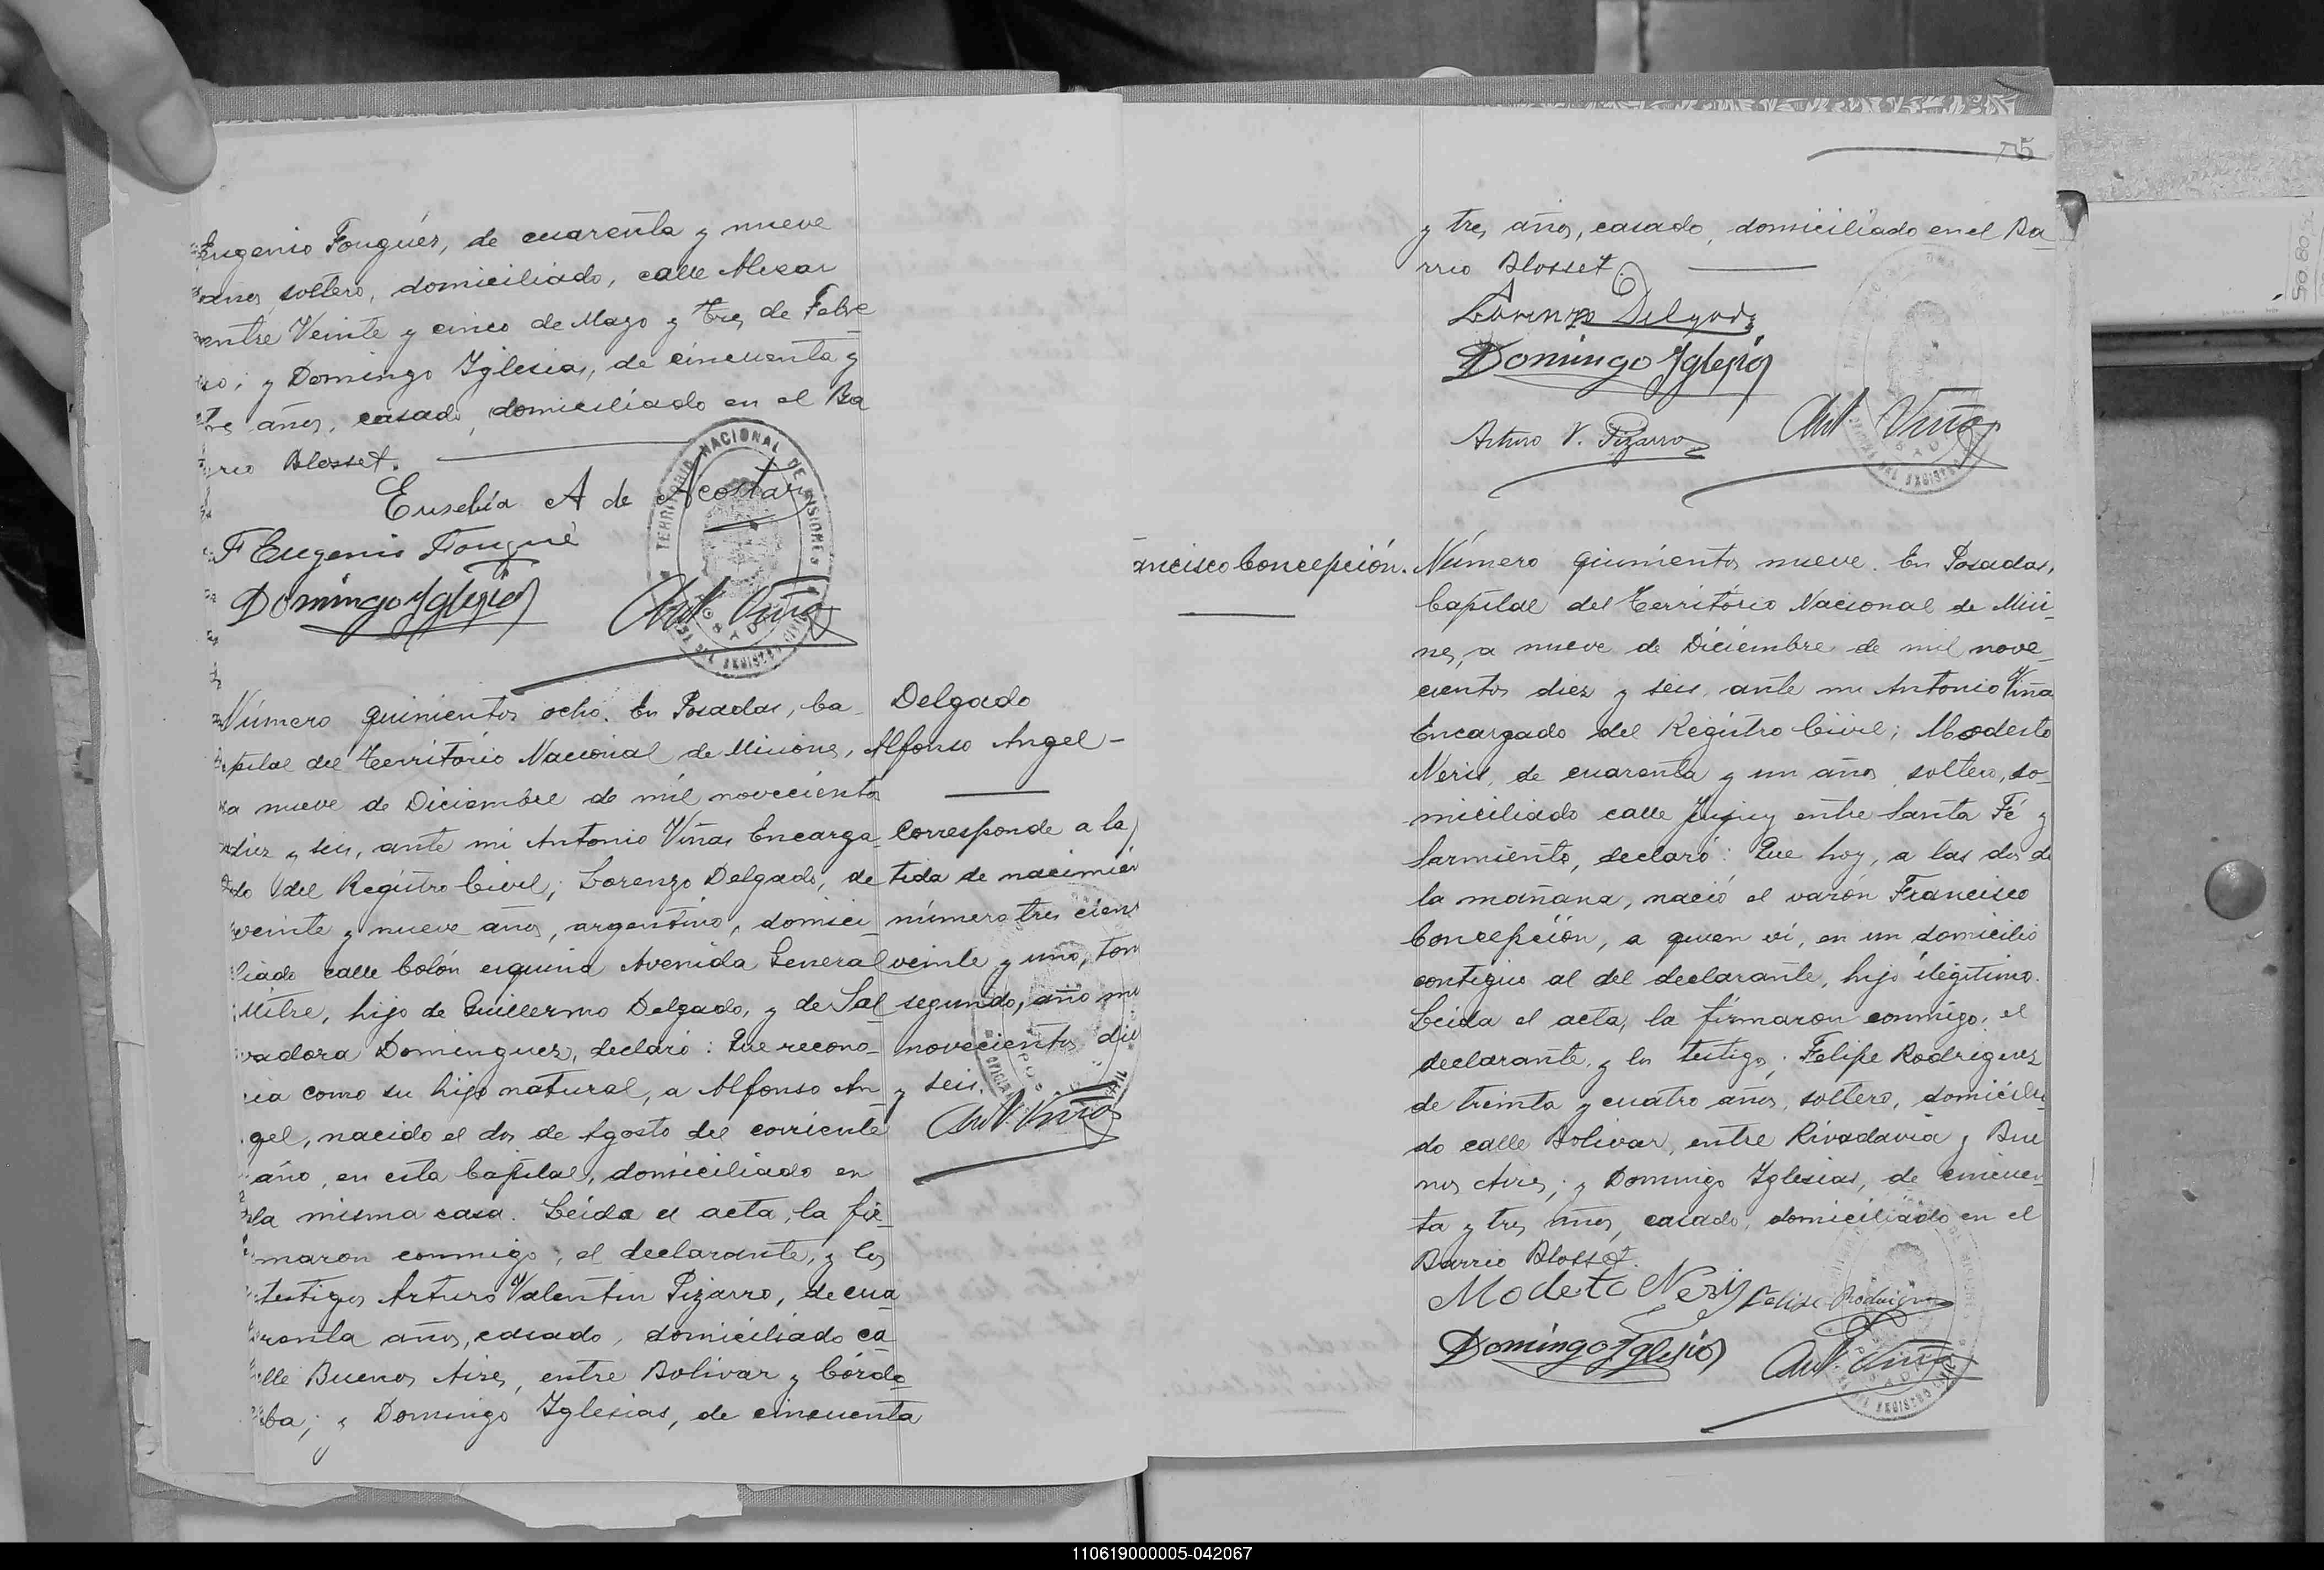 Eugenio Fouqués, de cuarenta y nueve
años soltero, domiciliado, calle Alvear
entre Veinte y cinco de Mayo y tres de Febre
ro; y Domingo Iglesias, de cincuenta y
tres años, casado, domiciliado en el Ba
rrio Blosset.
Eusebia A de Acosta
F Eugenio Fouqué
Domingo Iglesias
Ant Viñas
TERRITORIO NACIONAL DE MISIONES
POSADAS
Número quinientos ocho. En Posadas, Ca
pital del Territorio Nacional de Misiones,
a nueve de Diciembre de mil novecientos
diez y seis, ante mi Antonio Viñas Encarga
do del Registro Civil; Lorenzo Delgado, de
veinte y nueve años, argentino, domici
liado calle Colón esquina Avenida General
Mitre, hijo de Guillermo Delgado, y de Sal
vadora Dominguez, declaró: Que recono
cia como su hijo natural, a Alfonso An
gel, nacido el dos de Agosto del corriente
año, en esta Capital, domiciliado en
la misma casa. Leida el acta, la fir
maron conmigo; el declarante, y los
testigos Arturo Valentin Pizarro, de cua
renta años, casado, domiciliado ca
lle Buenos Aires, entre Bolivar y Córdo
ba; y Domingo Iglesias, de cincuenta
Delgado
Alfonso Angel -
Corresponde a la
tida de nacimien
número tres cien
veinte y uno, tom
segundo, año mi
novecientos die
y seis.
Ant. Viñas
75
y tres años, casado, domiciliado en el Ba
rrio Blosset.
Lorenzo Delgado
Domingo Iglesias
Arturo V. Pizarro
Ant Viñas
ancisco Concepción.
Número quinientos nueve. En Posadas,
Capital del Territorio Nacional de Misio
nes, a nueve de Diciembre de mil nove
cientos diez y seis, ante mi Antonio Viñas
Encargado del Registro Civil; Modesto
Neris, de cuarenta y un años, soltero, do
miciliado calle Jujuy entre Santa Fé y
Sarmiento, declaró: Que hoy, a las dos de
la mañana, nació el varón Francisco
Concepción, a quien ví, en un domicilio
contiguo al del declarante, hijo ilegítimo.
Leida el acta, la firmaron conmigo; el
declarante, y los testigos; Felipe Rodriguez
de treinta y cuatro años, soltero, domicilia
do calle Bolivar, entre Rivadavia y Bue
nos Aires; y Domingo Iglesias, de cincuen
ta y tres años, casado, domiciliado en el
Barrio Blosset.
Modeto Neris
Felipe Rodriguez
Domingo Iglesias
Ant Viñas
110619000005-042067